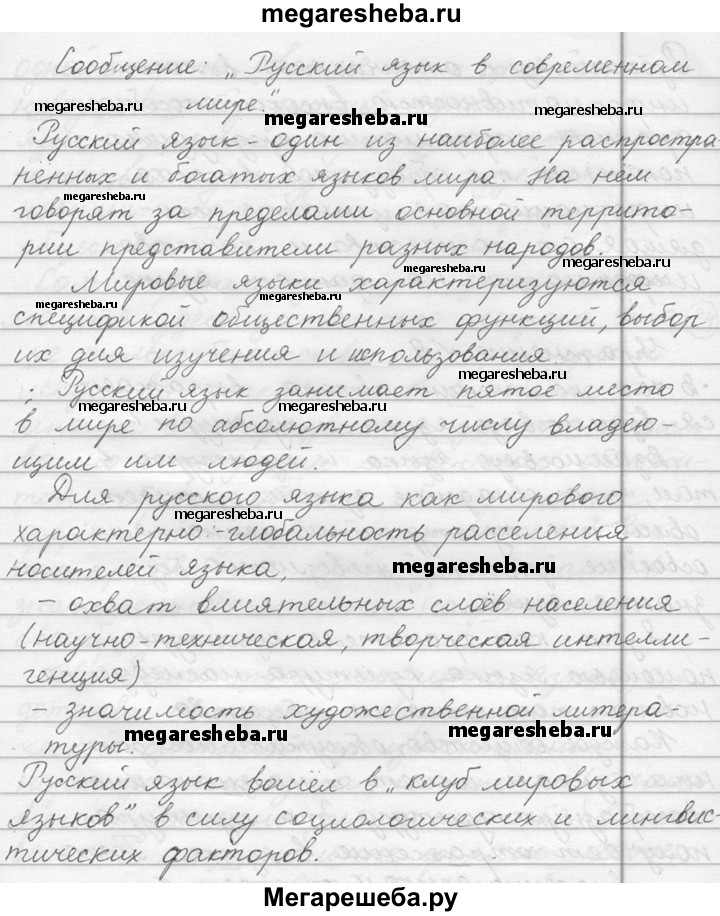 megaresheba.ru
Сообщение: „Русский язык в современном
megaresheba.ru мире." megaresheba.ru megaresheba.ru
Русский язык - один из наиболее распростра
нённых и богатых языков мира. На нём
megaresheba.ru
говорят за пределами основной террито-
рии представители разных народов.
megaresheba.ru megaresheba.ru
Мировые языки характеризуются
megaresheba.ru
спецификой общественных функций, выбор
их для изучения и использования.
megaresheba.ru megaresheba.ru
Русский язык занимает пятое место
megaresheba.ru megaresheba.ru
в мире по абсолютному числу владею-
щим им людей.
Для русского языка как мирового
megaresheba.ru
характерно:-глобальность расселения
носителей языка, megaresheba.ru
- охват влиятельных слоёв населения
(научно-техническая, творческая интелли-
генция)
- значимость художественной литера-
туры. megaresheba.ru megaresheba.ru
Русский язык вошёл в „клуб мировых
языков" в силу социологических и лингвис-
тических факторов.
Мегарешеба.ру